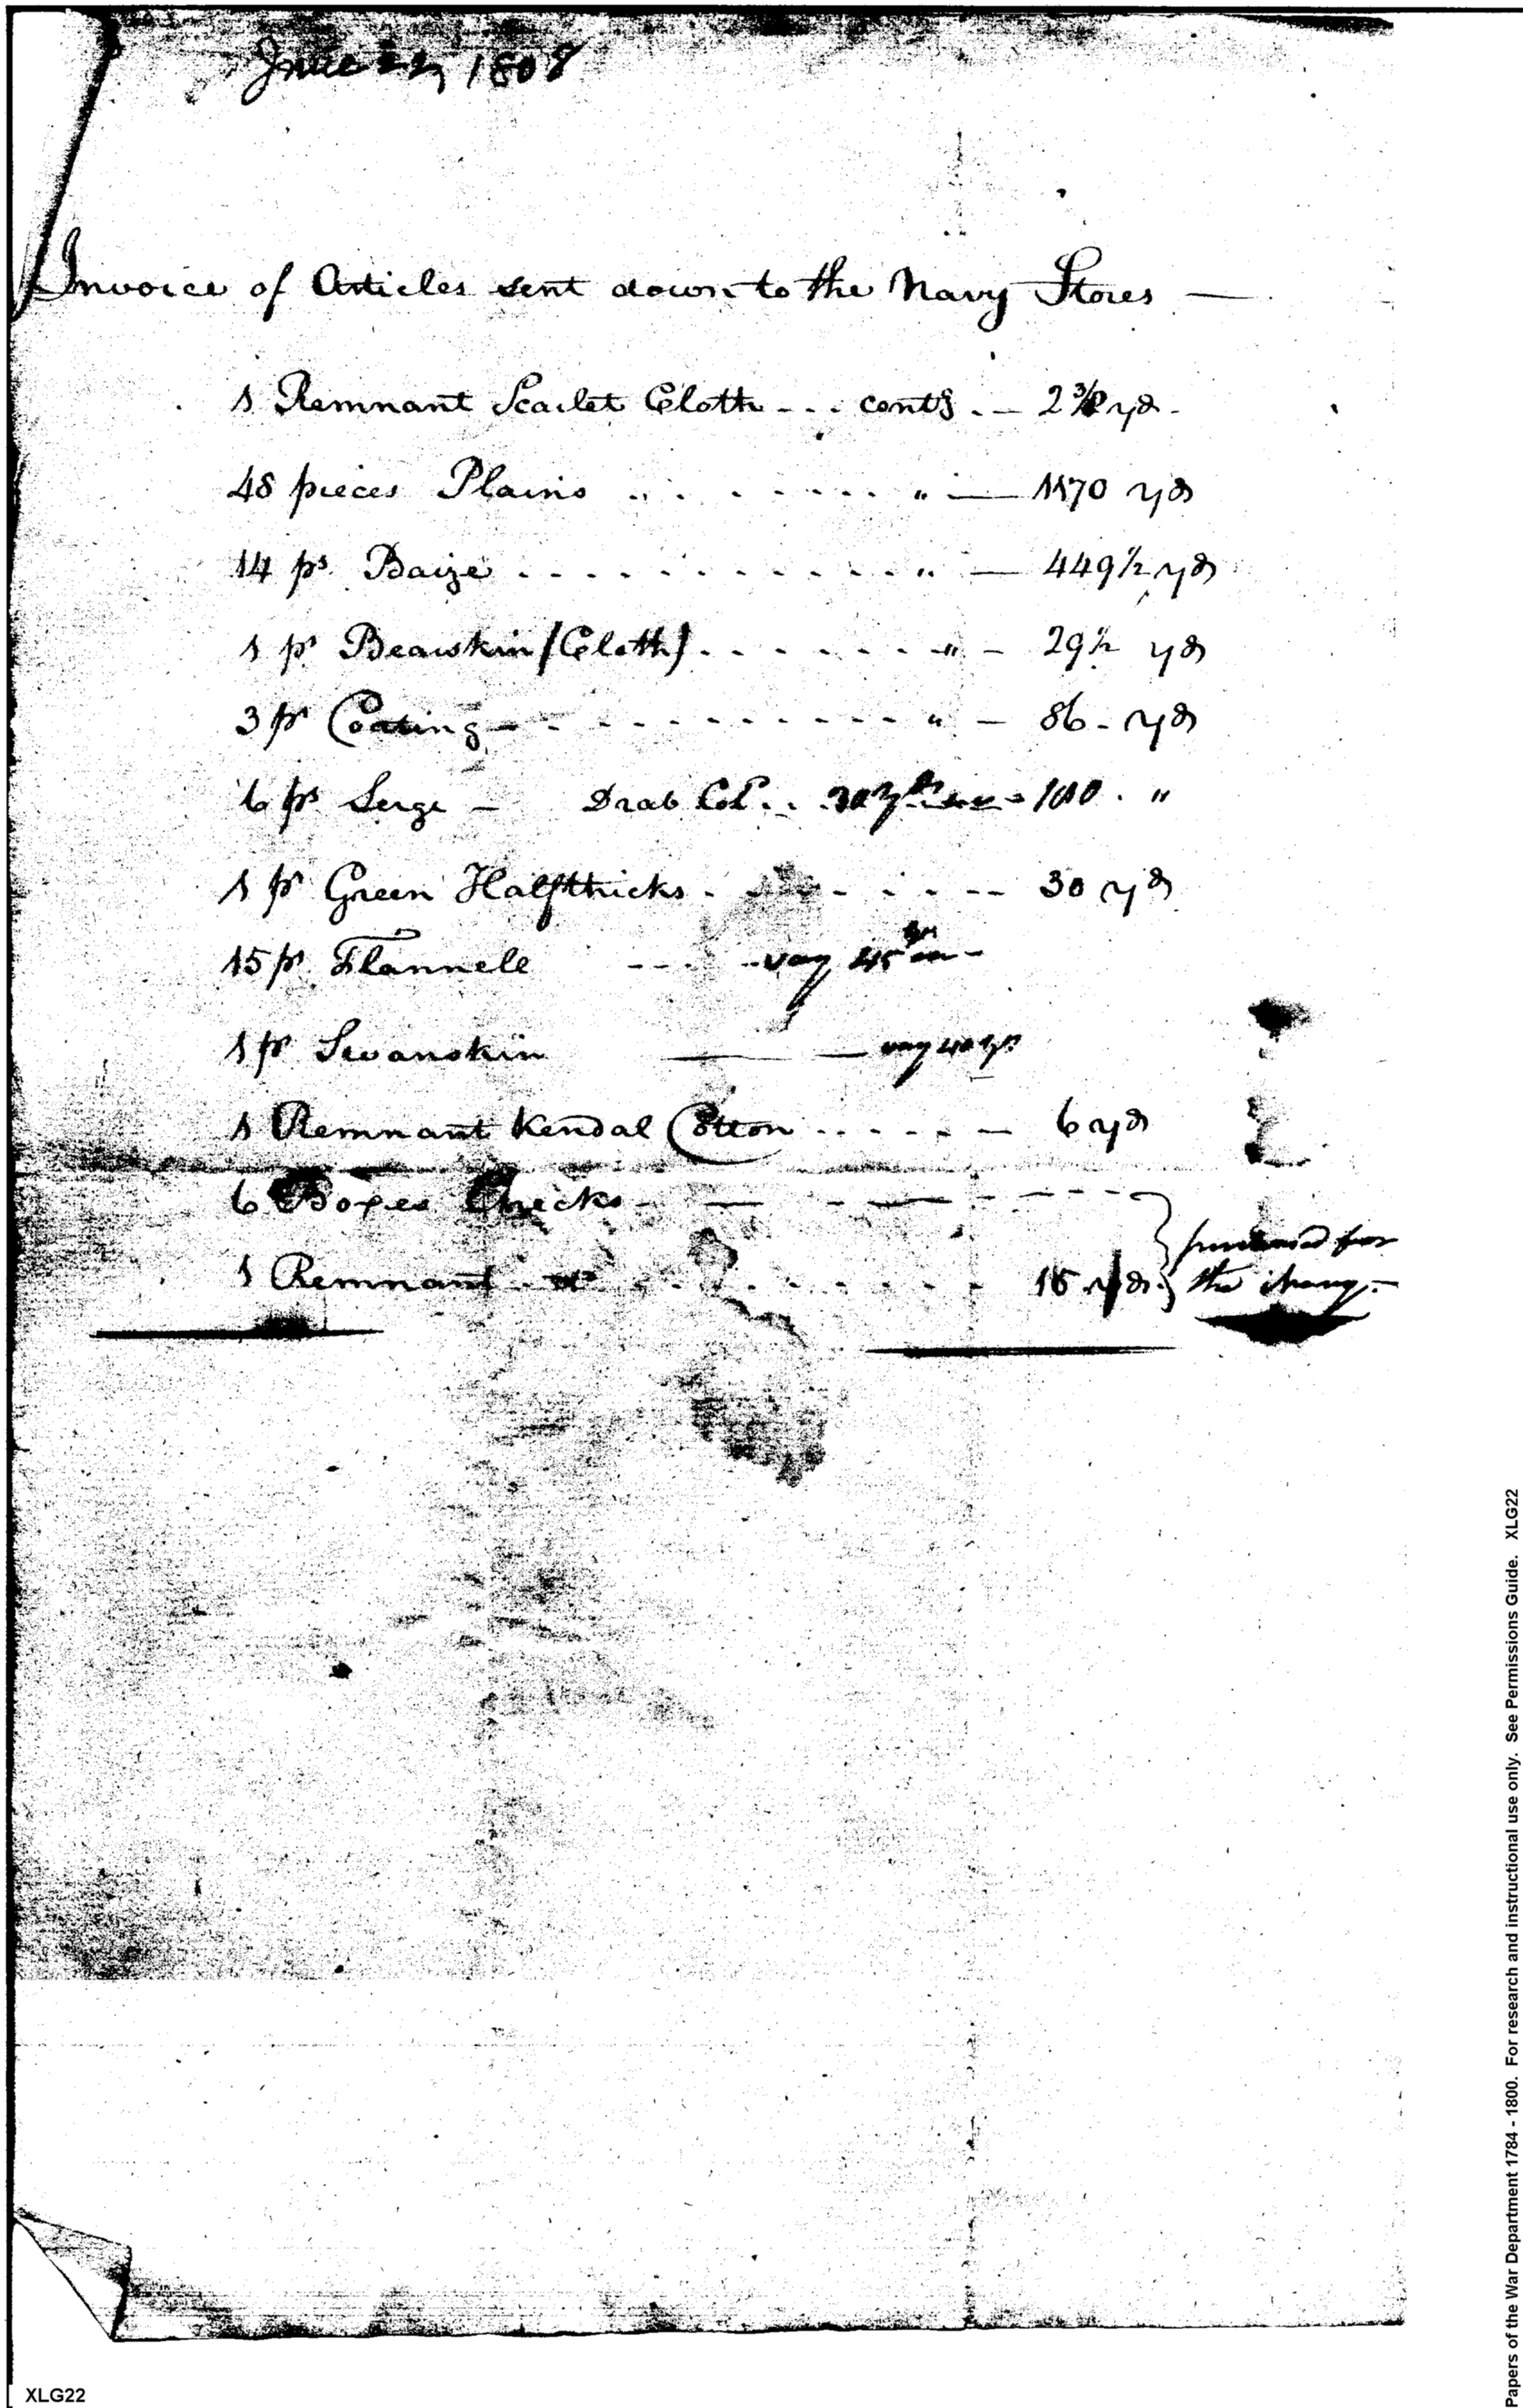 June 22, 1808
Invoice of Articles sent down to the Navy Stores —
1 Remnant Scarlet Cloth - - . contg . — 2 3/8 yds -
48 pieces Plains . . . . . . . . " — 1570 yds
14 ps Baize . . . . . . . . . . . . " — 449 1/2 yds
1 ps Bearskin (Cloth) . - - - - - " - 29 1/2 yds
3 ps Coating - - - - - - - - - - " - 86 - yds
6 ps Serge - Drab Cold . . 180 . "
1 ps Green Halfthicks . . . . - - 30 yds
15 ps Flannele - - - - say 45
1 ps Swanskin — — say 40 yds
1 Remnant Kendal Cotton . . . . . — 6 yds
6 Boxes Checks - — - — - - - - -
1 Remnant do . . . . . . . 15 yds } purchased for
the
XLG22
Papers of the War Department 1784 - 1800. For research and instructional use only. See Permissions Guide. XLG22